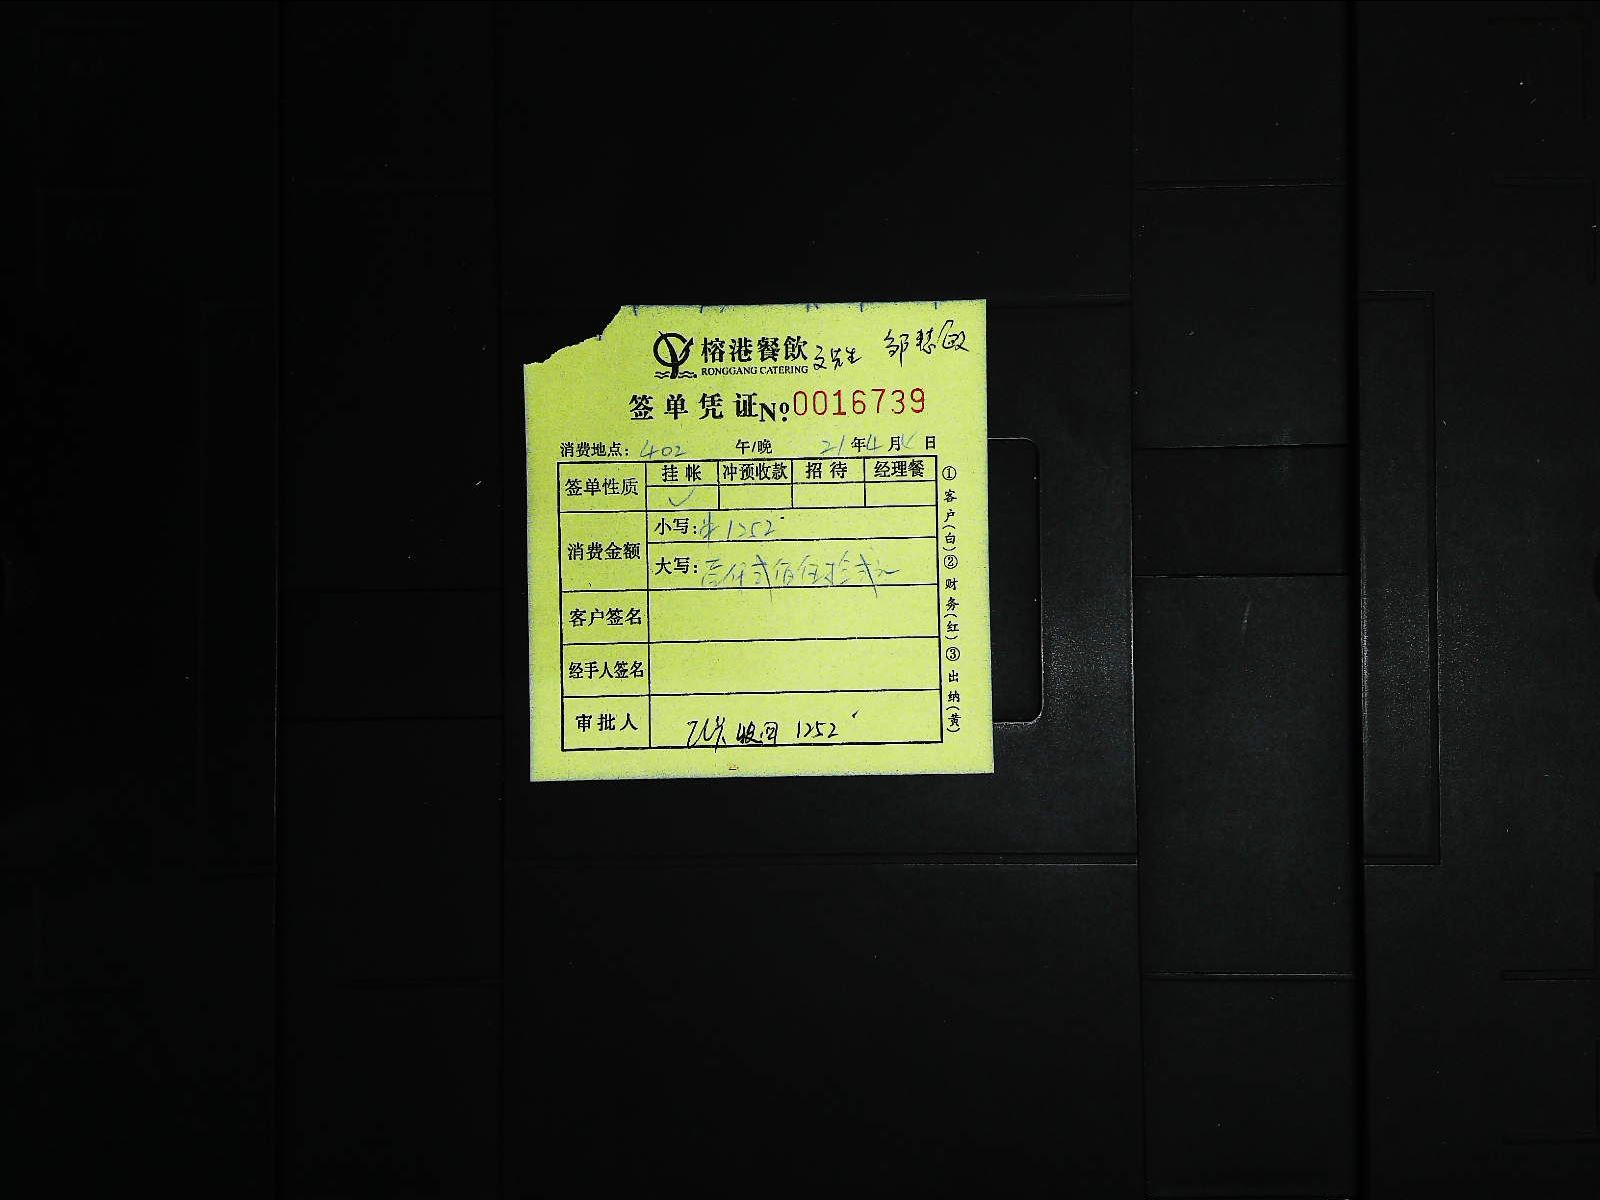 榕港餐飲 文先生 邹慧
RONGGANG CATERING
签单凭证 №0016739
消费地点：402 午/晚 21年4月4日
签单性质 挂帐 冲预收款 招待 经理餐
✓
消费金额 小写：¥1252
大写：壹仟贰佰伍拾贰元
客户签名
经手人签名
审批人 收回 1252
①客户（白）②财务（红）③出纳（黄）